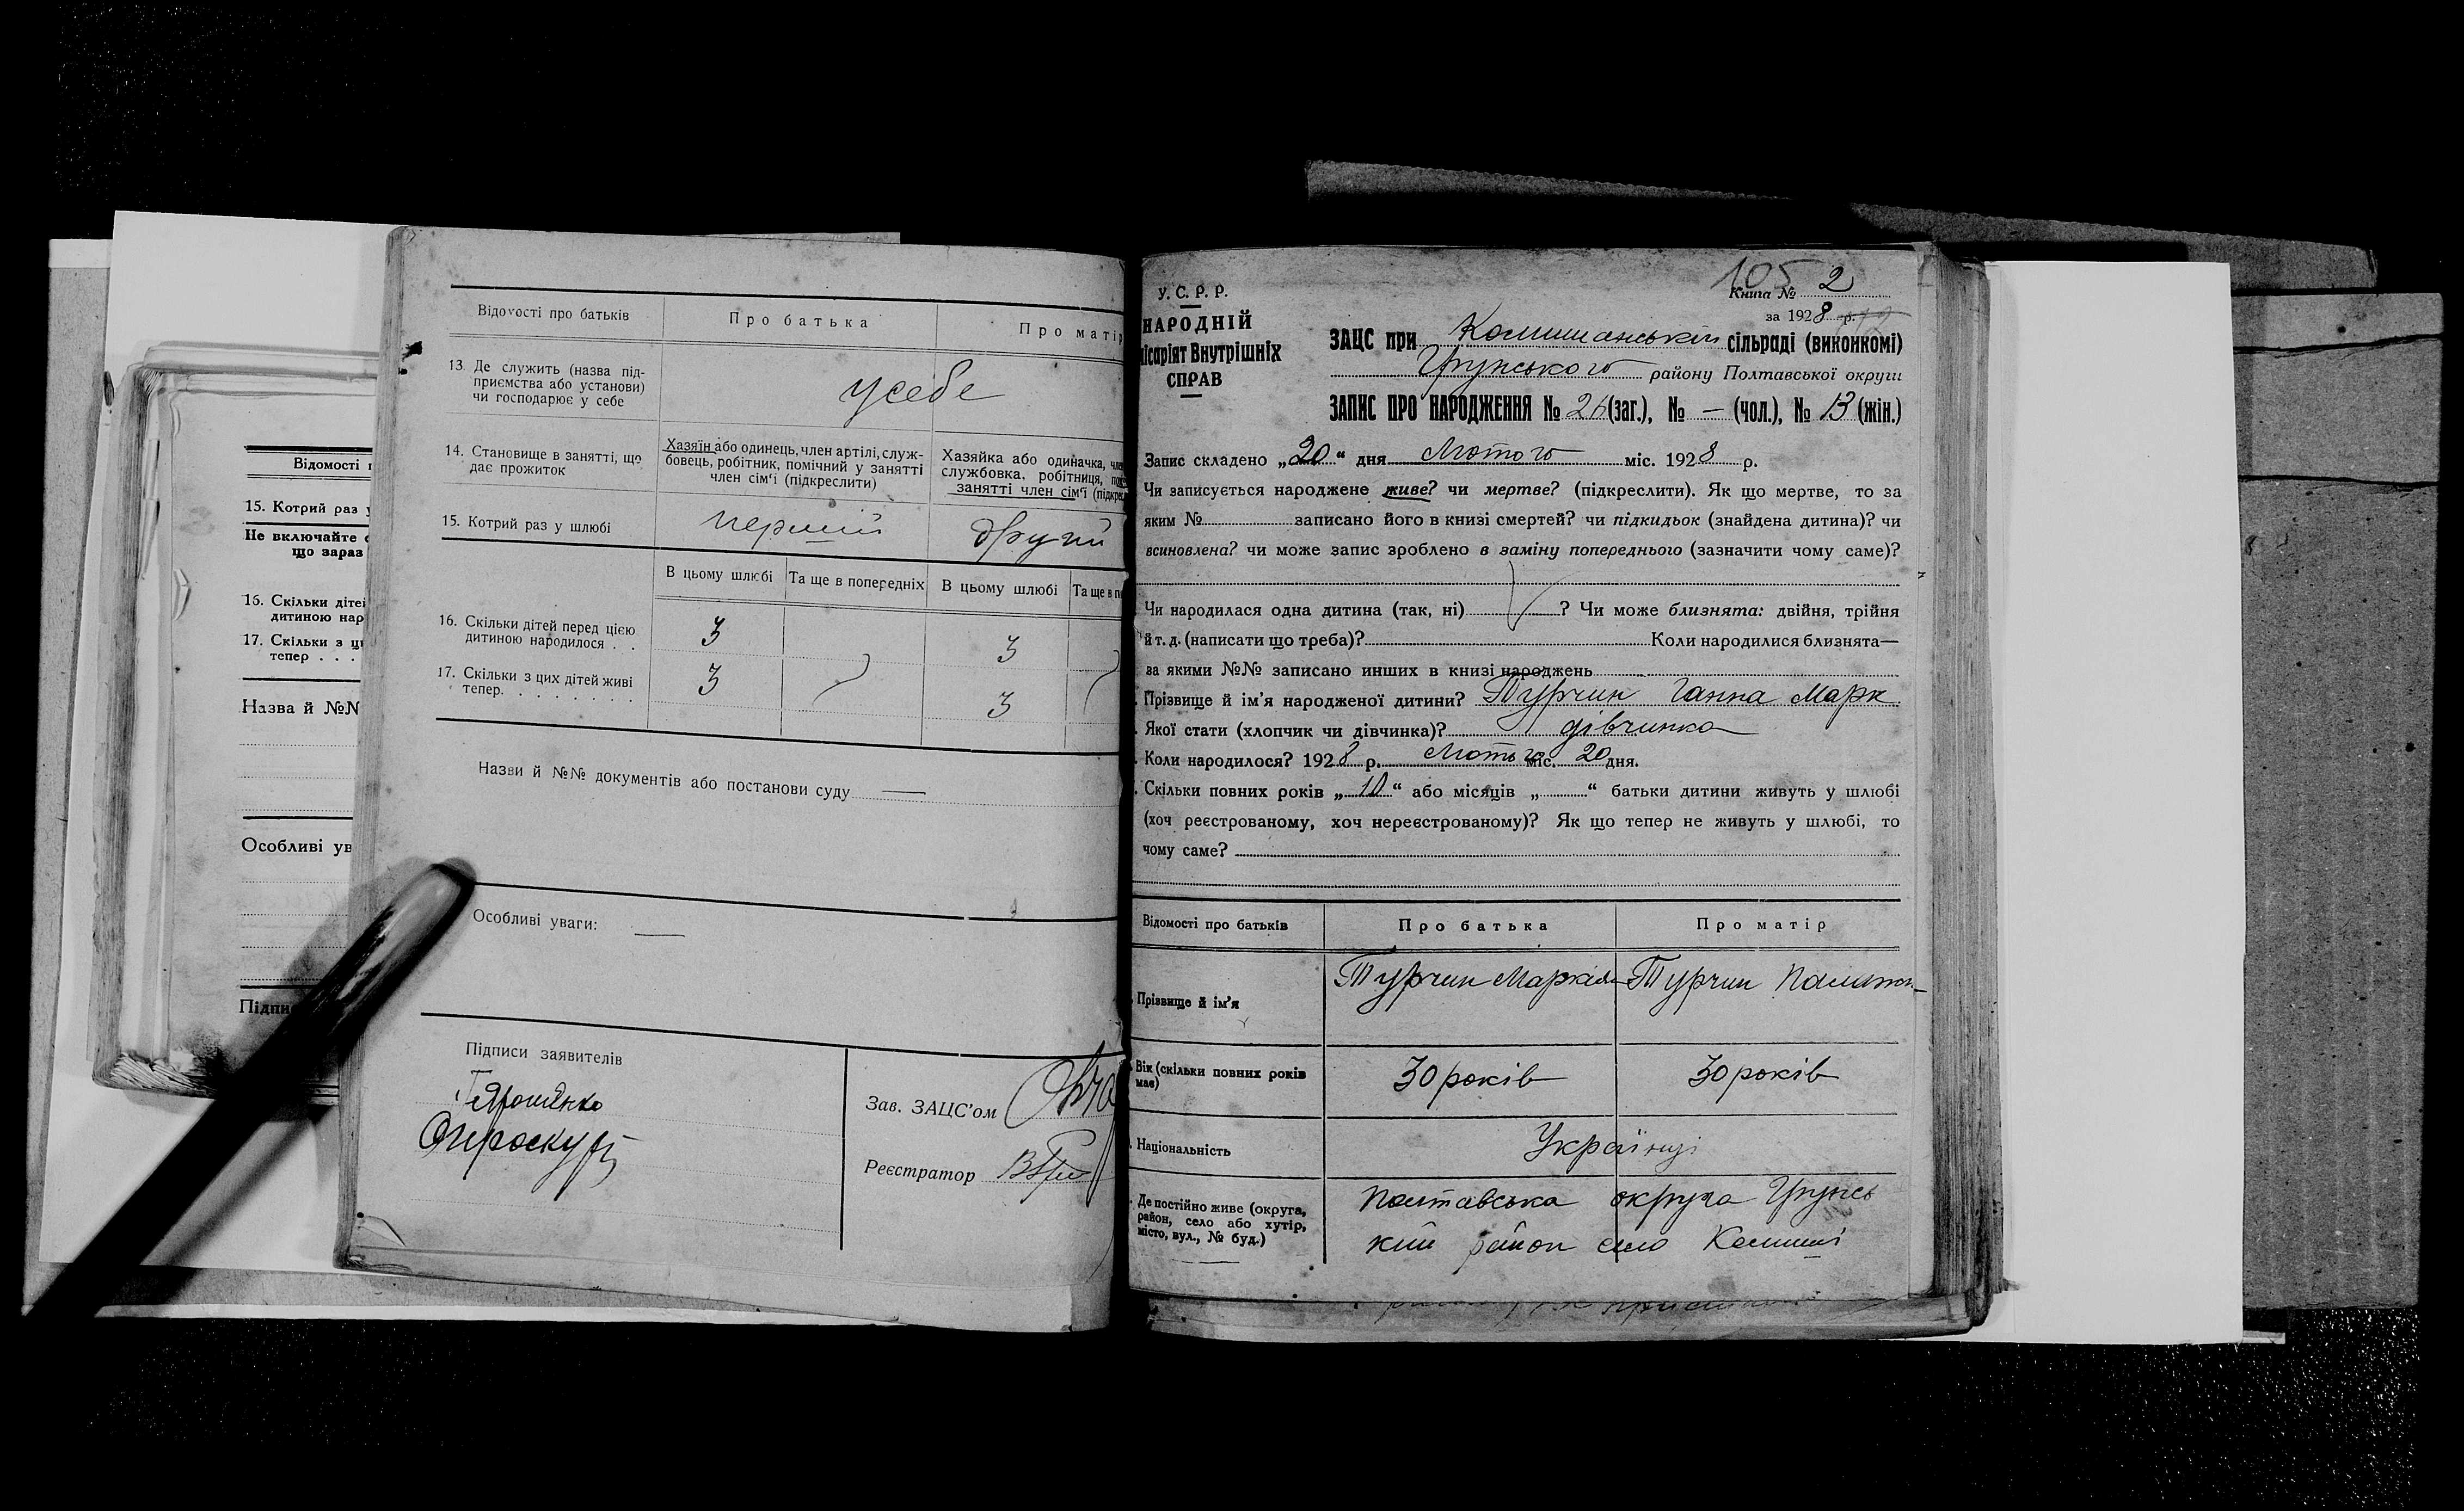 Відомості
15. Котрий раз у
Не включайте
що зараз
16. Скільки дітей
дитиною нар
17. Скільки з ц
тепер . . .
Назва й №№
Особливі ув
Підпи
Відомості про батьків
Про батька
Про матір
13. Де служить (назва під-
приємства або установи)
чи господарює у себе
усебе
14. Становище в занятті, що
дає прожиток
Хазяїн або одинець, член артілі, служ-
бовець, робітник, помічний у занятті
член сім'ї (підкреслити)
Хазяйка або одиначка, чле
службовка, робітниця, по
занятті член сім'ї (підкре
15. Котрий раз у шлюбі
перший
другий
В цьому шлюбі
Та ще в попередніх
В цьому шлюбі
Та ще в п
16. Скільки дітей перед цією
дитиною народилося . .
3
3
17. Скільки з цих дітей живі
тепер. . . . . . . .
3
3
Назви й №№ документів або постанови суду —
Особливі уваги: —
Підписи заявителів
Зав. ЗАЦС'ом
Реєстратор
105
Книга № 2
за 1928 р.
У. С. Р. Р.
НАРОДНІЙ
місаріят Внутрішніх
СПРАВ
ЗАЦС при Комишанській сільраді (виконкомі)
Грунського району Полтавської округи
ЗАПИС ПРО НАРОДЖЕННЯ № 26 (заг.), № — (чол.), № 13 (жін.)
Запис складено „20“ дня Лютого міс. 1928 р.
Чи записується народжене живе? чи мертве? (підкреслити). Як що мертве, то за
яким № записано його в книзі смертей? чи підкидьок (знайдена дитина)? чи
всиновлена? чи може запис зроблено в заміну попереднього (зазначити чому саме)?
Чи народилася одна дитина (так, ні) ? Чи може близнята: двійня, трійня
й т. д. (написати що треба)? Коли народилися близнята—
за якими №№ записано инших в книзі народжень
Прізвище й ім'я народженої дитини? Турчин Ганна Марк
Якої стати (хлопчик чи дівчинка)? дівчинка
Коли народилося? 1928 р. Лютого міс. 20 дня.
Скільки повних років „10“ або місяців „ “ батьки дитини живуть у шлюбі
(хоч реєстрованому, хоч нереєстрованому)? Як що тепер не живуть у шлюбі, то
чому саме?
Відомості про батьків
Про батька
Про матір
Прізвище й ім'я
Турчин Маркіян
Турчин
Вік (скільки повних років
має)
30 років
30 років
Національність
Українці
Де постійно живе (округа,
район, село або хутір,
місто, вул., № буд.)
Полтавська округа Грунсь
кий район село Комиші